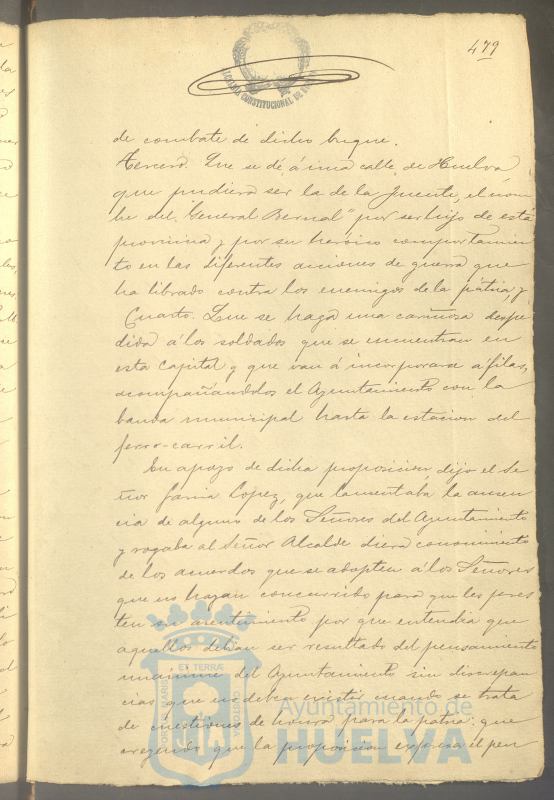 479
ALCALDIA CONSTITUCIONAL DE HUELVA
de combate de dicho buque.
Tercero. Que se dé á una calle de Huelva
que pudiera ser la de la Fuente, el nom
bre del "General Bernal" por ser hijo de esta
provincia y por su heróico comportamien
to en las diferentes acciones de guerra que
ha librado contra los enemigos de la pátria, y
Cuarto. Que se haga una cariñosa despe
dida á los soldados que se encuentran en
esta capital y que van á incorporarse á filas,
acompañandolos el Ayuntamiento con la
banda municipal hasta la estacion del
ferro-carril.
En apoyo de dicha proposicion, dijo el Se
ñor Garcia Lopez, que lamentaba la ausen
cia de alguno de los Señores del Ayuntamiento
y rogaba al Señor Alcalde diera conocimiento
de los acuerdos que se adopten á los Señores
que no hayan concurrido para que les pres
ten su asentimiento por que entendia que
aquellos debian ser resultado del pensamiento
unánime del Ayuntamiento sin discrepan
cias que no deben existir cuando se trata
de cuestiones de honra para la patria: que
creyendo que la proposicion expresa el pen
PORTUS MARIS ET TERRÆ CUSTODIA
Ayuntamiento de
HUELVA